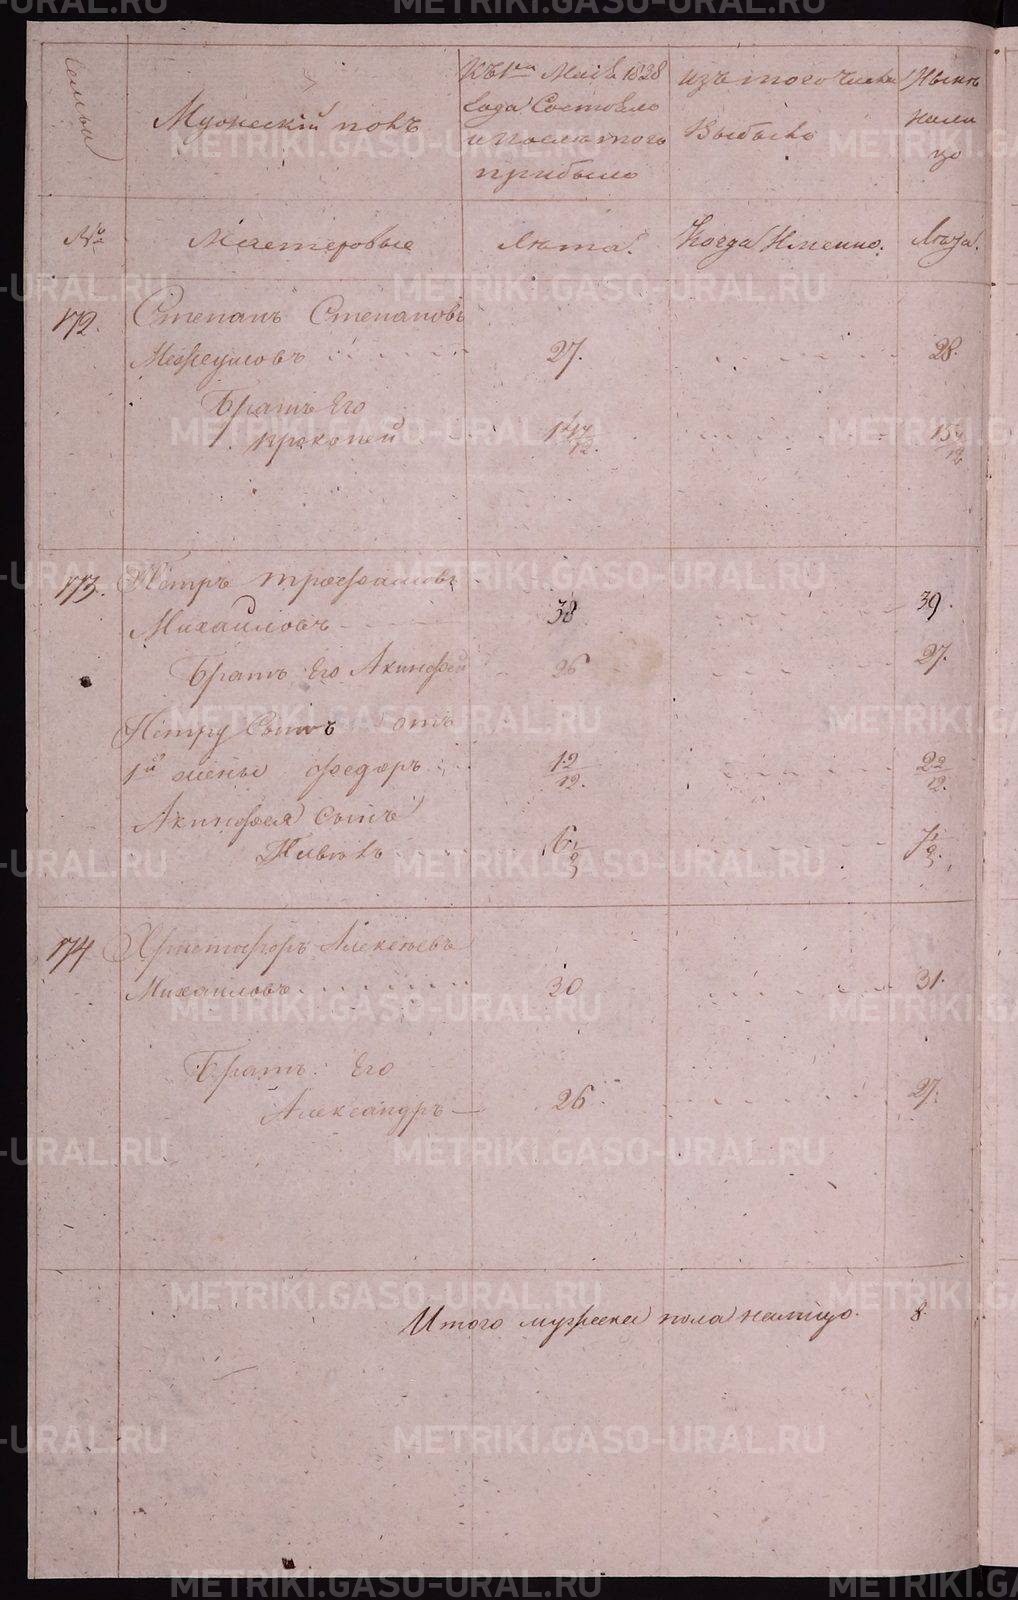 Семьи
Мужескій полъ
Къ 1му Маія 1828
года Состояло
и после того
прибыло
изъ того числа
Выбыло
Ныне
нали
цо
№
Мастеровые
Лѣта.
Когда Именно.
Лѣта.
172. Степанъ Степановъ
27. 28.
Братъ Его
Прокопей 14 7/12. 15 7/12
173. Пётръ Трофимовъ
Михаиловъ 38 39.
Братъ Его Акинфей 26 27.
Пётру Сынъ отъ
1й жены Федоръ 12/12. 22/12.
Акинфея Сынъ
Павелъ 6 1/2 7 1/2
174 Христофоръ Алексѣевъ
Михаиловъ 30 31.
Братъ Его
Александръ 26 27.
Итого мужеска пола налицо. 8.
METRIKI.GASO-URAL.RU